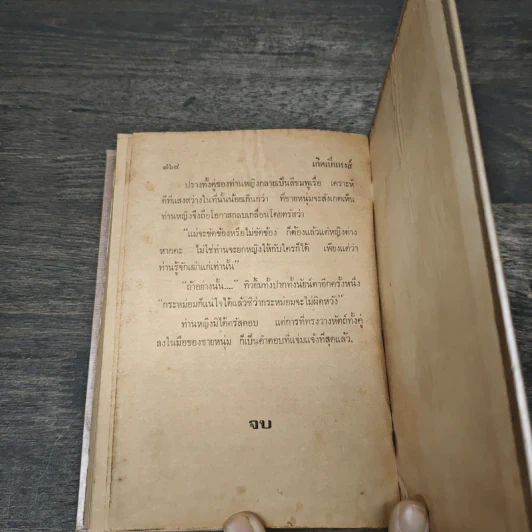 ๗๖๘ เกิดเป็นหงส์
ปรางทั้งคู่ของท่านหญิงกลายเป็นสีชมพูเรื่อ เคราะห์
ดีที่แสงสว่างในที่นั้นน้อยเกินกว่า ที่ชายหนุ่มจะสังเกตเห็น
ท่านหญิงจึงถือโอกาสกลบเกลื่อนโดยตรัสว่า
"แม่จะขัดข้องหรือไม่ขัดข้อง ก็ต้องแล้วแต่หญิงต่าง
หากคะ ไม่ใช่ท่านจะยกหญิงให้กับใครก็ได้ เพียงแต่ว่า
ท่านรู้จักเผ่าแก่เท่านั้น"
"ถ้าอย่างนั้น...." ทิวยิ้มทั้งปากทั้งนัยน์ตาอีกครั้งหนึ่ง
"กระหม่อมก็แน่ใจได้แล้วซิว่ากระหม่อมจะไม่ผิดหวัง"
ท่านหญิงมิได้ตรัสตอบ แต่การที่ทรงวางหัตถ์ทั้งคู่
ลงในมือของชายหนุ่ม ก็เป็นคำตอบที่แจ่มแจ้งที่สุดแล้ว.
จบ